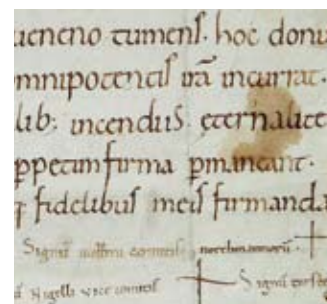 ueneno tumens. hoc donu
mnipotentis irā incurrat.
lib; incendiis ęternalite
ppetim firma pmaneant.
fidelibus meis firmanda
Signū comitis.
Signū
Nigelli uicecomitis